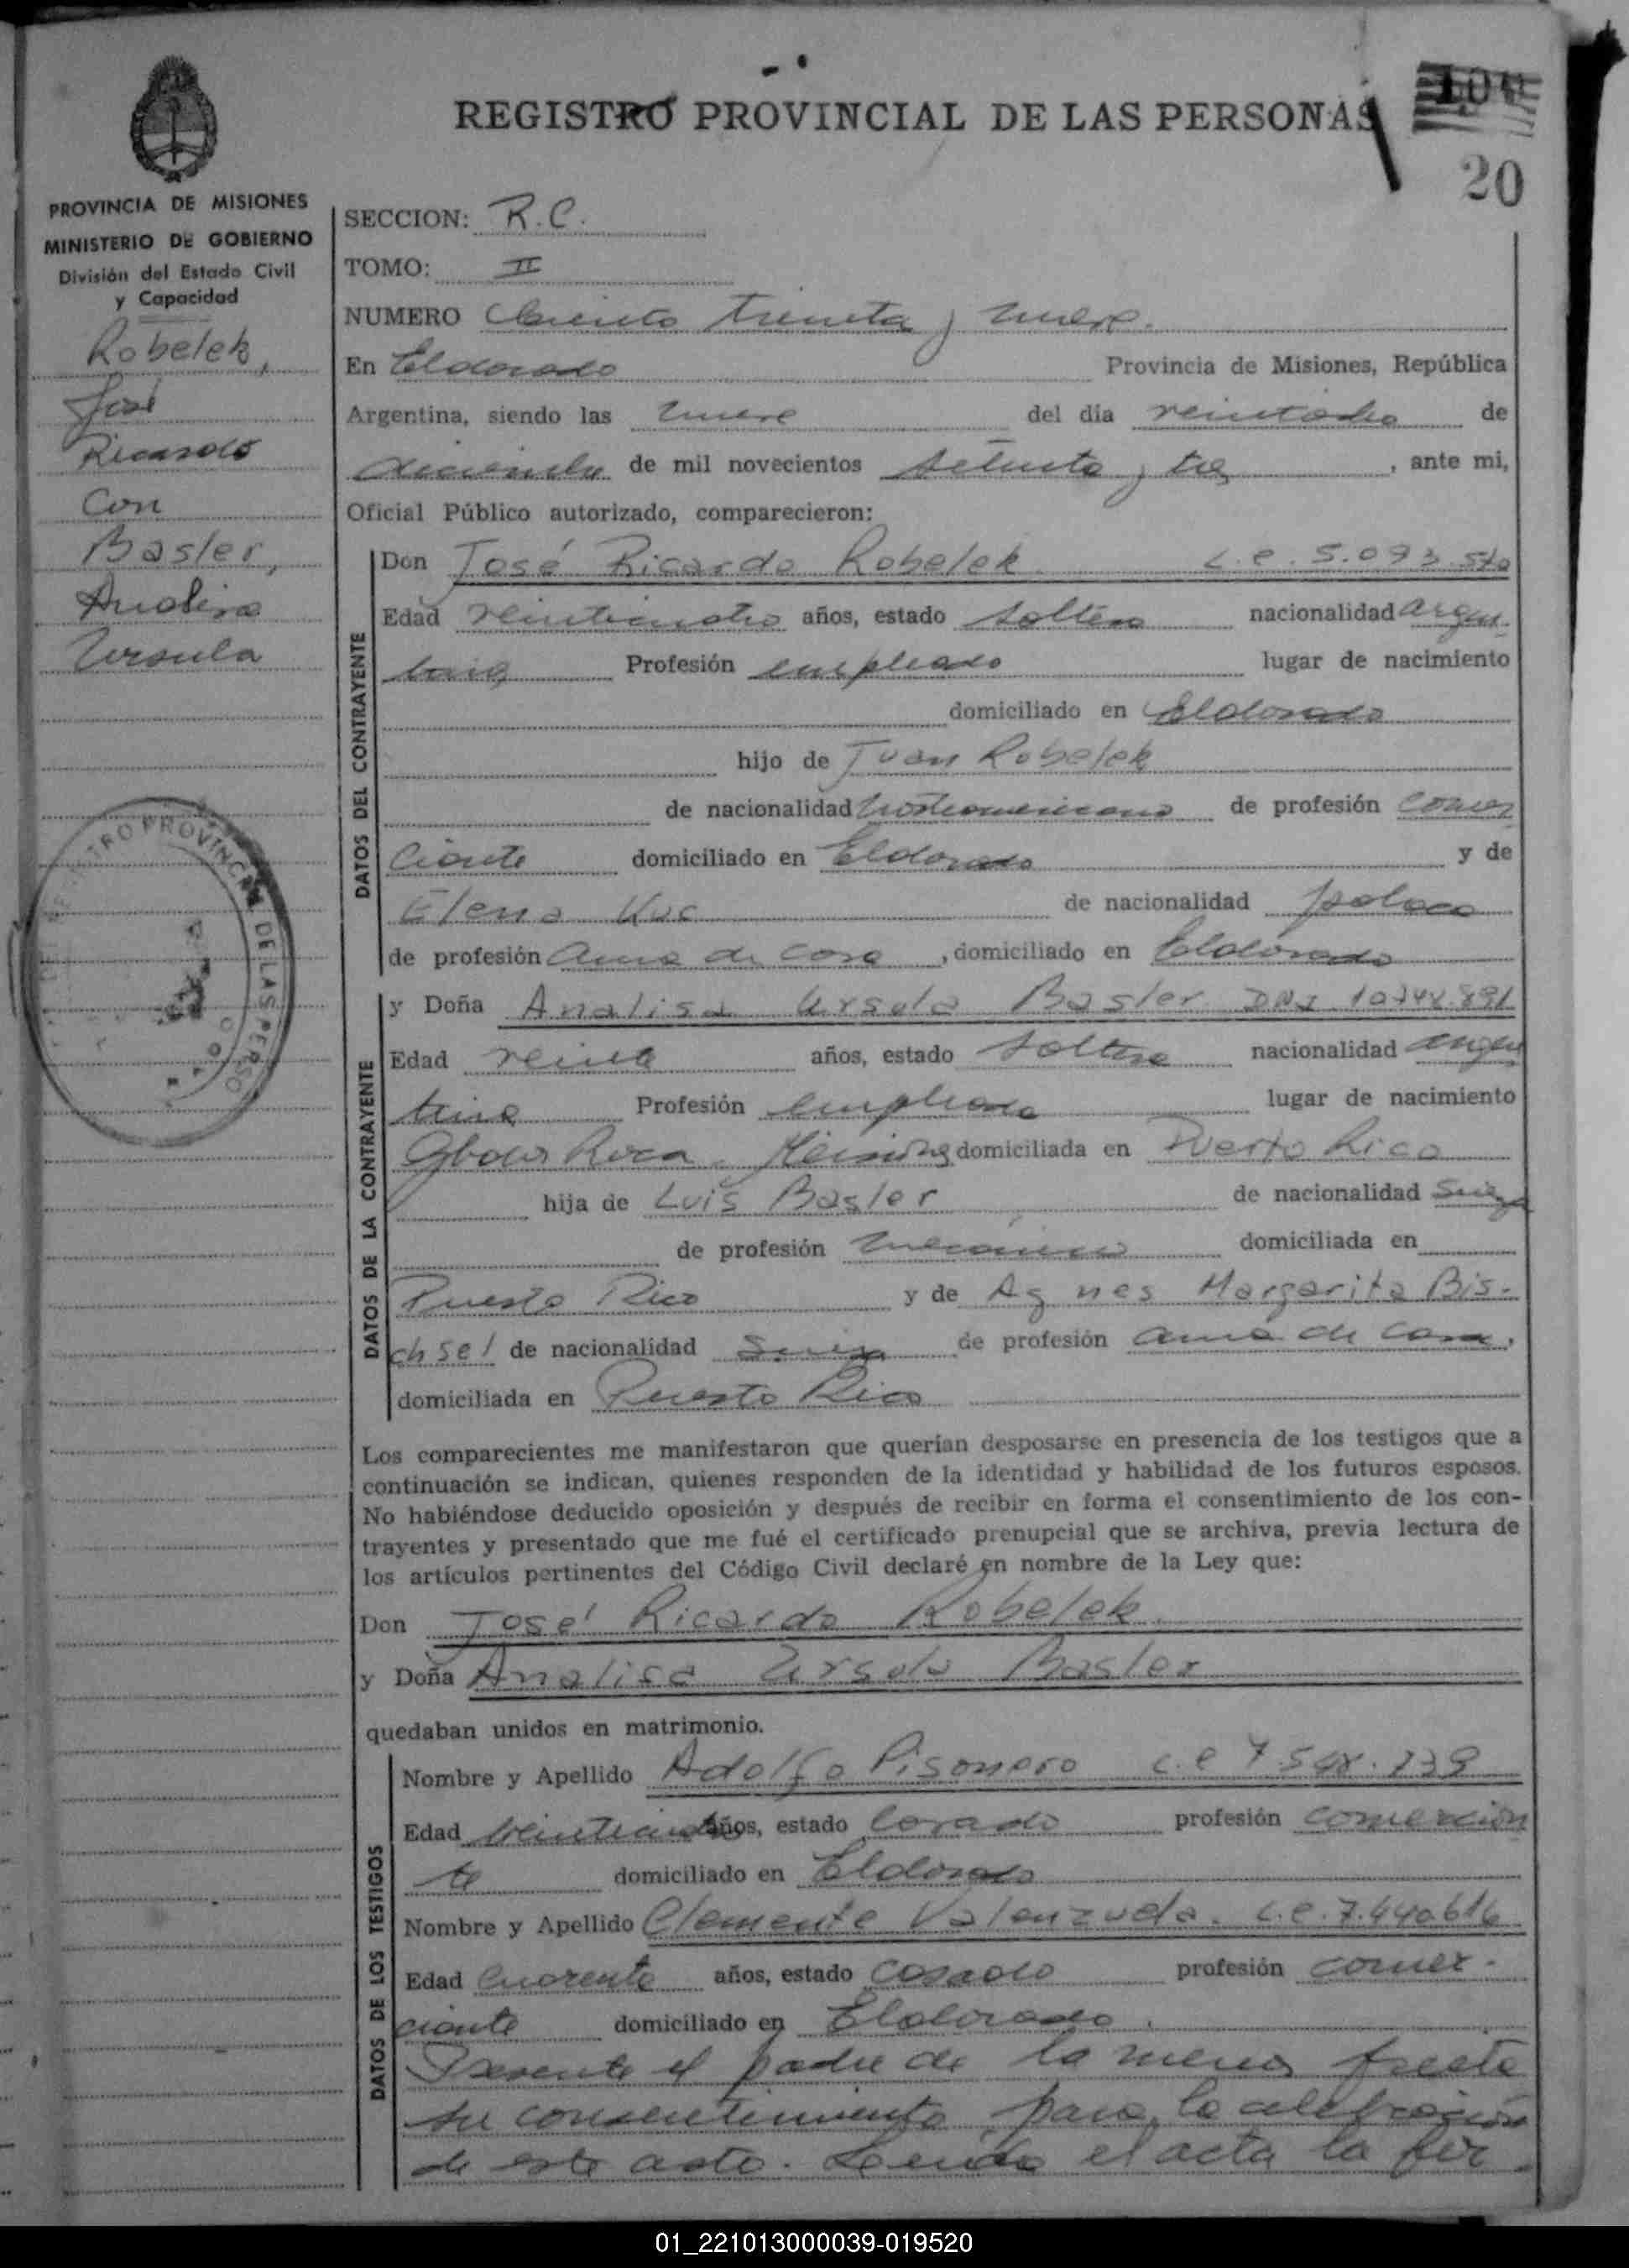 REGISTRO PROVINCIAL DE LAS PERSONAS
20
PROVINCIA DE MISIONES
MINISTERIO DE GOBIERNO
División del Estado Civil
y Capacidad
Robelek,
José
Ricardo
Con
Basler,
Analisa
Ursula
SECCION: R.C.
TOMO: II
NUMERO Ciento treinta y nueve.
En Eldorado Provincia de Misiones, República
Argentina, siendo las nueve del día veintiocho de
diciembre de mil novecientos setenta y tres, ante mi,
Oficial Público autorizado, comparecieron:
DATOS DEL CONTRAYENTE
Don José Ricardo Robelek L.e. 5.093.
Edad veinticuatro años, estado soltero nacionalidad argen
tina Profesión empleado lugar de nacimiento
domiciliado en Eldorado
hijo de Juan Robelek
de nacionalidad norteamericano de profesión comer
ciante domiciliado en Eldorado y de
Elena Kuc de nacionalidad polaca
de profesión ama de casa, domiciliado en Eldorado
DATOS DE LA CONTRAYENTE
y Doña Analisa Ursula Basler DNI 10.748.891
Edad veinte años, estado soltera nacionalidad argen
tina Profesión empleada lugar de nacimiento
Roca, Misiones domiciliada en Puerto Rico
hija de Luis Basler de nacionalidad Suiza
de profesión mecánico domiciliada en
Puerto Rico y de Agnes Margarita Bis-
chsel de nacionalidad Suiza de profesión ama de casa,
domiciliada en Puerto Rico
Los comparecientes me manifestaron que querían desposarse en presencia de los testigos que a
continuación se indican, quienes responden de la identidad y habilidad de los futuros esposos.
No habiéndose deducido oposición y después de recibir en forma el consentimiento de los con-
trayentes y presentado que me fué el certificado prenupcial que se archiva, previa lectura de
los artículos pertinentes del Código Civil declaré en nombre de la Ley que:
Don José Ricardo Robelek
y Doña Analisa Ursula Basler
quedaban unidos en matrimonio.
DATOS DE LOS TESTIGOS
Nombre y Apellido Adolfo Pisonero L.e 7.548.239
Edad veinticuatro años, estado casado profesión comercian
te domiciliado en Eldorado
Nombre y Apellido Clemente Valenzuela. L.e. 7.440.616
Edad Cuarenta años, estado casado profesión comer-
ciante domiciliado en Eldorado.
Presente el padre de la menor presta
su consentimiento para la celebración
de este acto. Leída el acta la fir
01_221013000039-019520